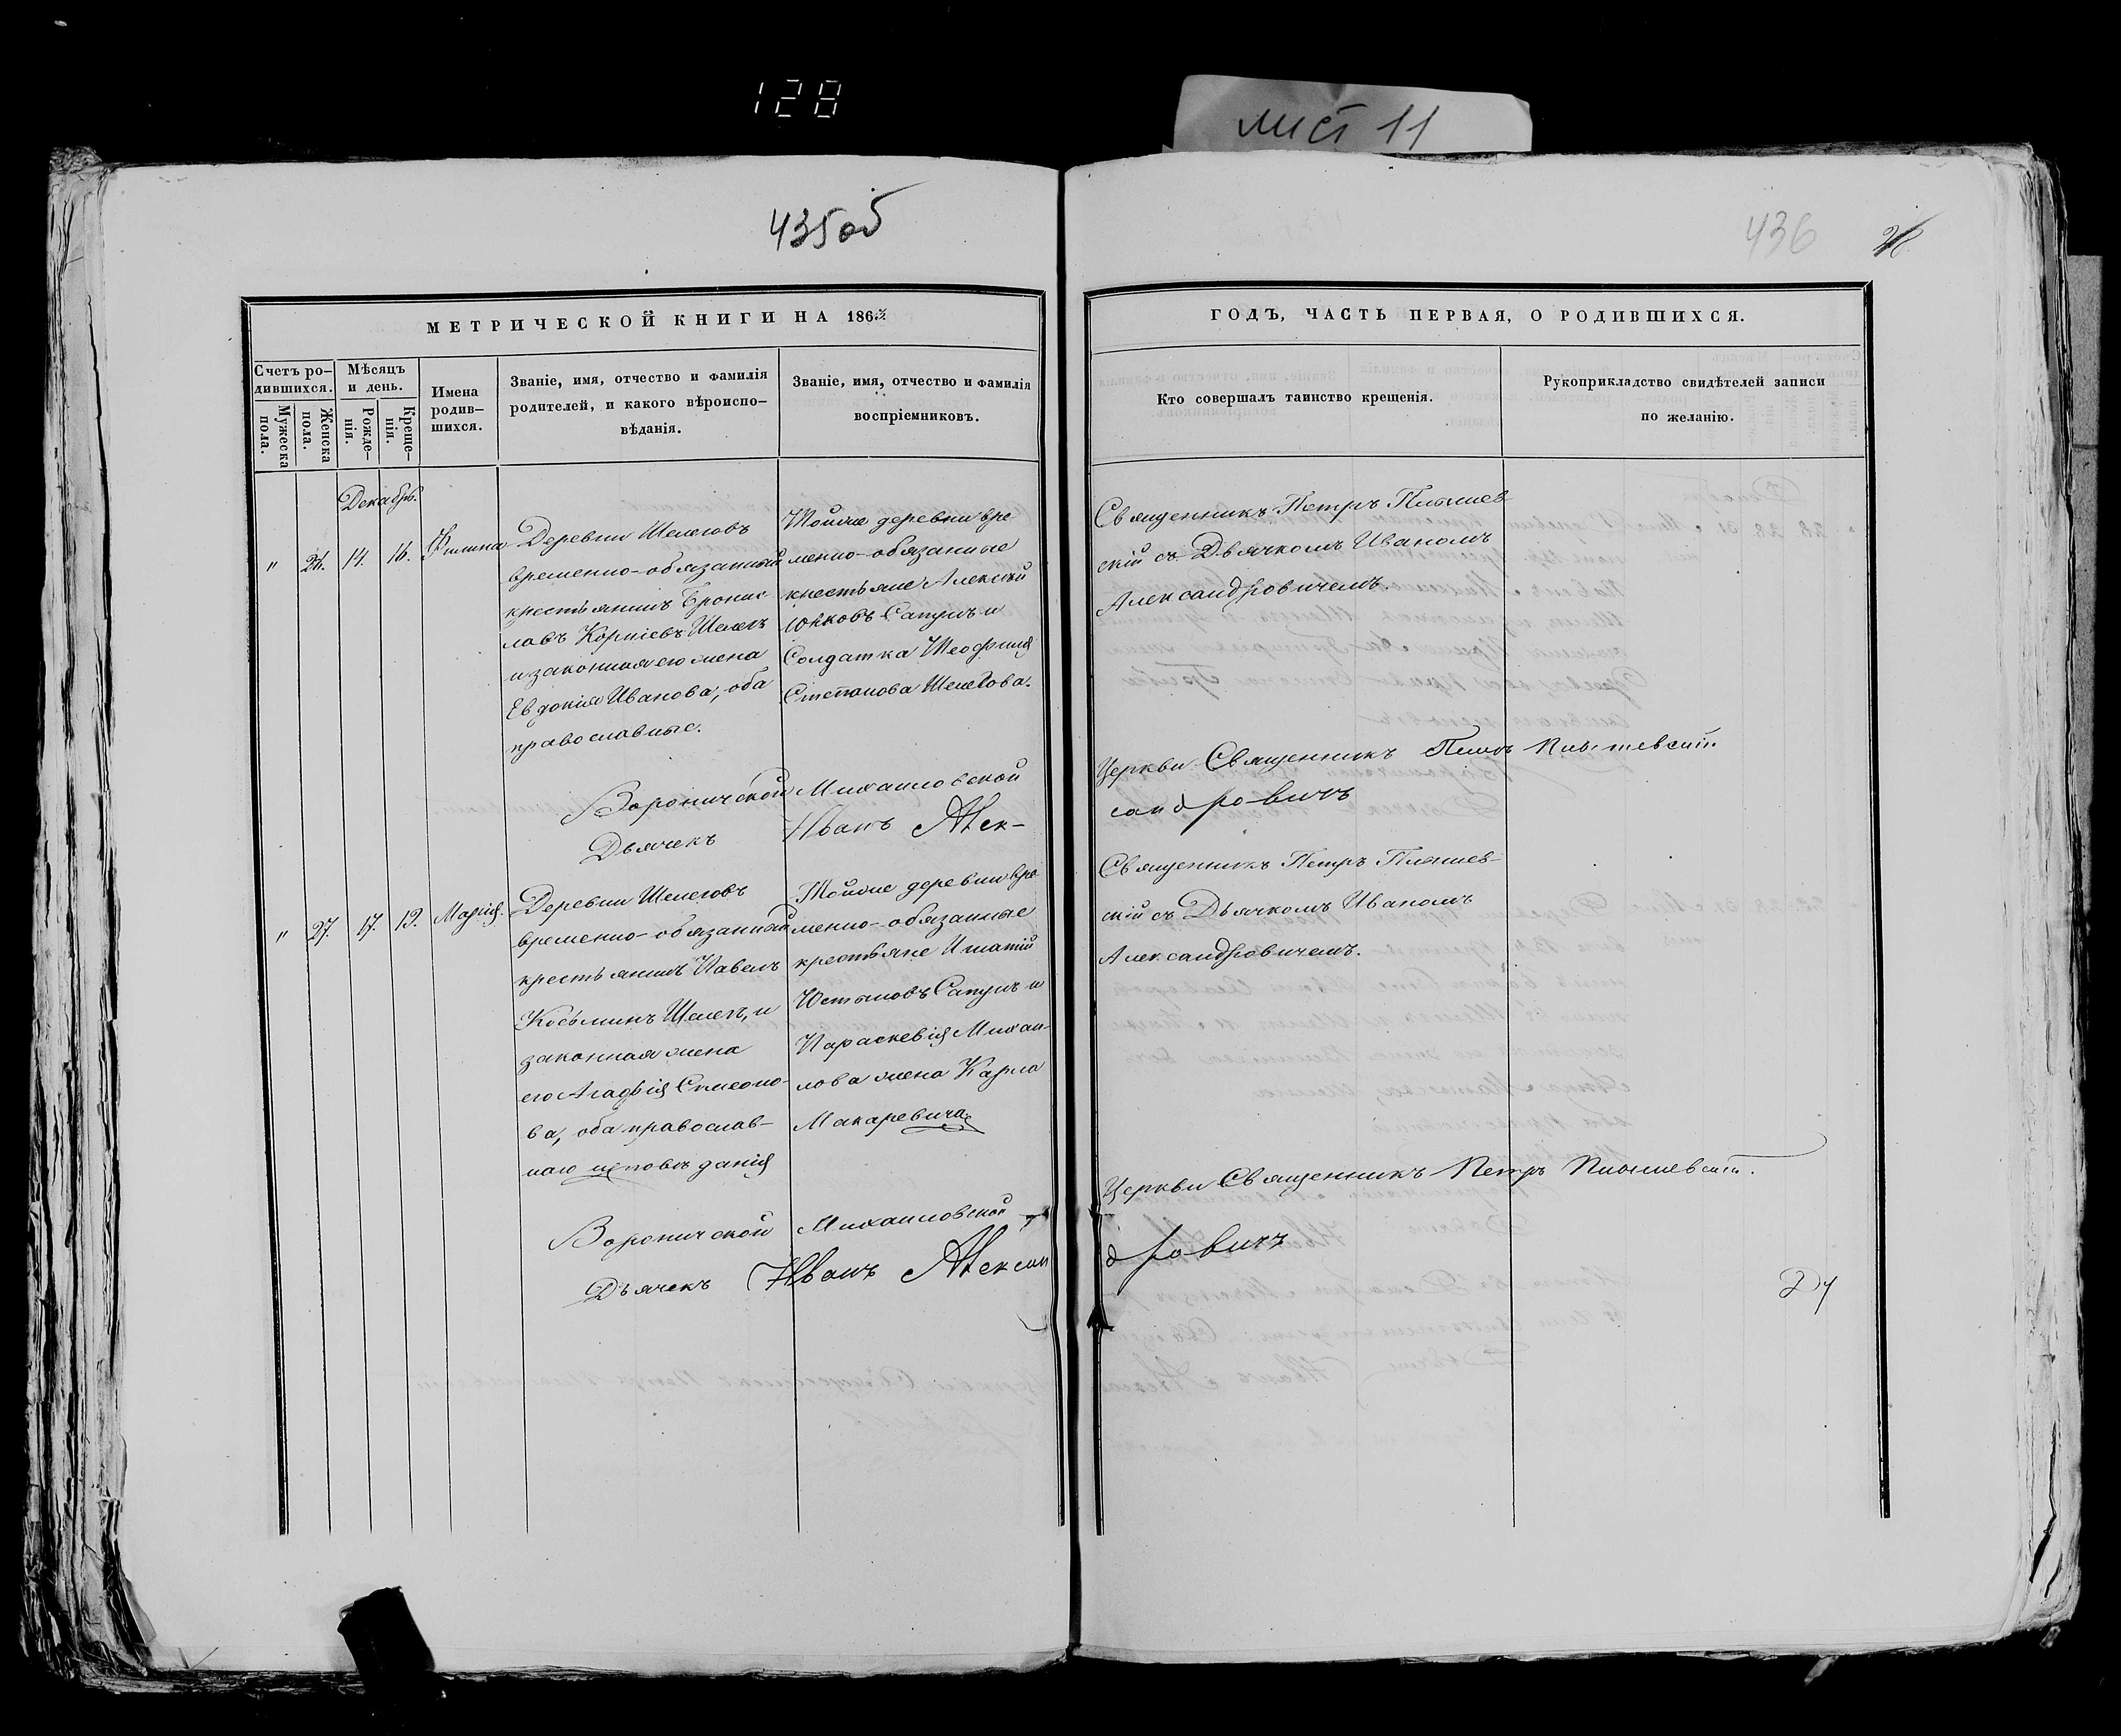 128
лист 11
435об
436
МЕТРИЧЕСКОЙ КНИГИ НА 1863
ГОДЪ, ЧАСТЬ ПЕРВАЯ, О РОДИВШИХСЯ.
Счетъ ро-
дившихся.
Мужеска
пола.
Женска
пола.
Мѣсяцъ
и день.
Рожде-
нія.
Креще-
нія.
Имена
родив-
шихся.
Званіе, имя, отчество и фамилія
родителей, и какого вѣроиспо-
вѣданія.
Званіе, имя, отчество и фамилія
воспріемниковъ.
Кто совершалъ таинство крещенія.
Рукоприкладство свидѣтелей записи
по желанію.
Декабрь.
" 26. 14. 16.
Деревни Шелеговъ
временно-обязанный
крестьянинъ Бронис-
лавъ Корніевъ Шелегъ
и законная его жена
Евдокія Иванова, оба
православные.
Тойже деревни вре
менно-обязанные
крестьяне Алексѣй
Сапунъ и
Солдатка Теофилія
Степанова Шелегова.
Священникъ Петръ
скій съ Дьячкомъ Иваномъ
Александровичемъ.
Вороничской Михаиловской Церкви Священникъ Петръ
Дьячекъ Иванъ Алек-
сандровичъ
" 27. 17. 19. Марія.
Деревни Шелеговъ
временно-обязанный
крестьянинъ Павелъ
Косьминъ Шелегъ, и
законная жена
его Агафія Симеоно-
ва, оба православ-
наго исповѣданія
Тойже деревни вре
менно-обязанные
крестьяне Игнатій
Юстиновъ Сапунъ и
Параскевія Михаи-
лова жена Карла
Макаревича
Священникъ Петръ
скій съ Дьячкомъ Иваномъ
Александровичемъ.
Вороничской Михаиловской Церкви Священникъ Петръ
Дьячекъ Иванъ Алексан
дровичъ